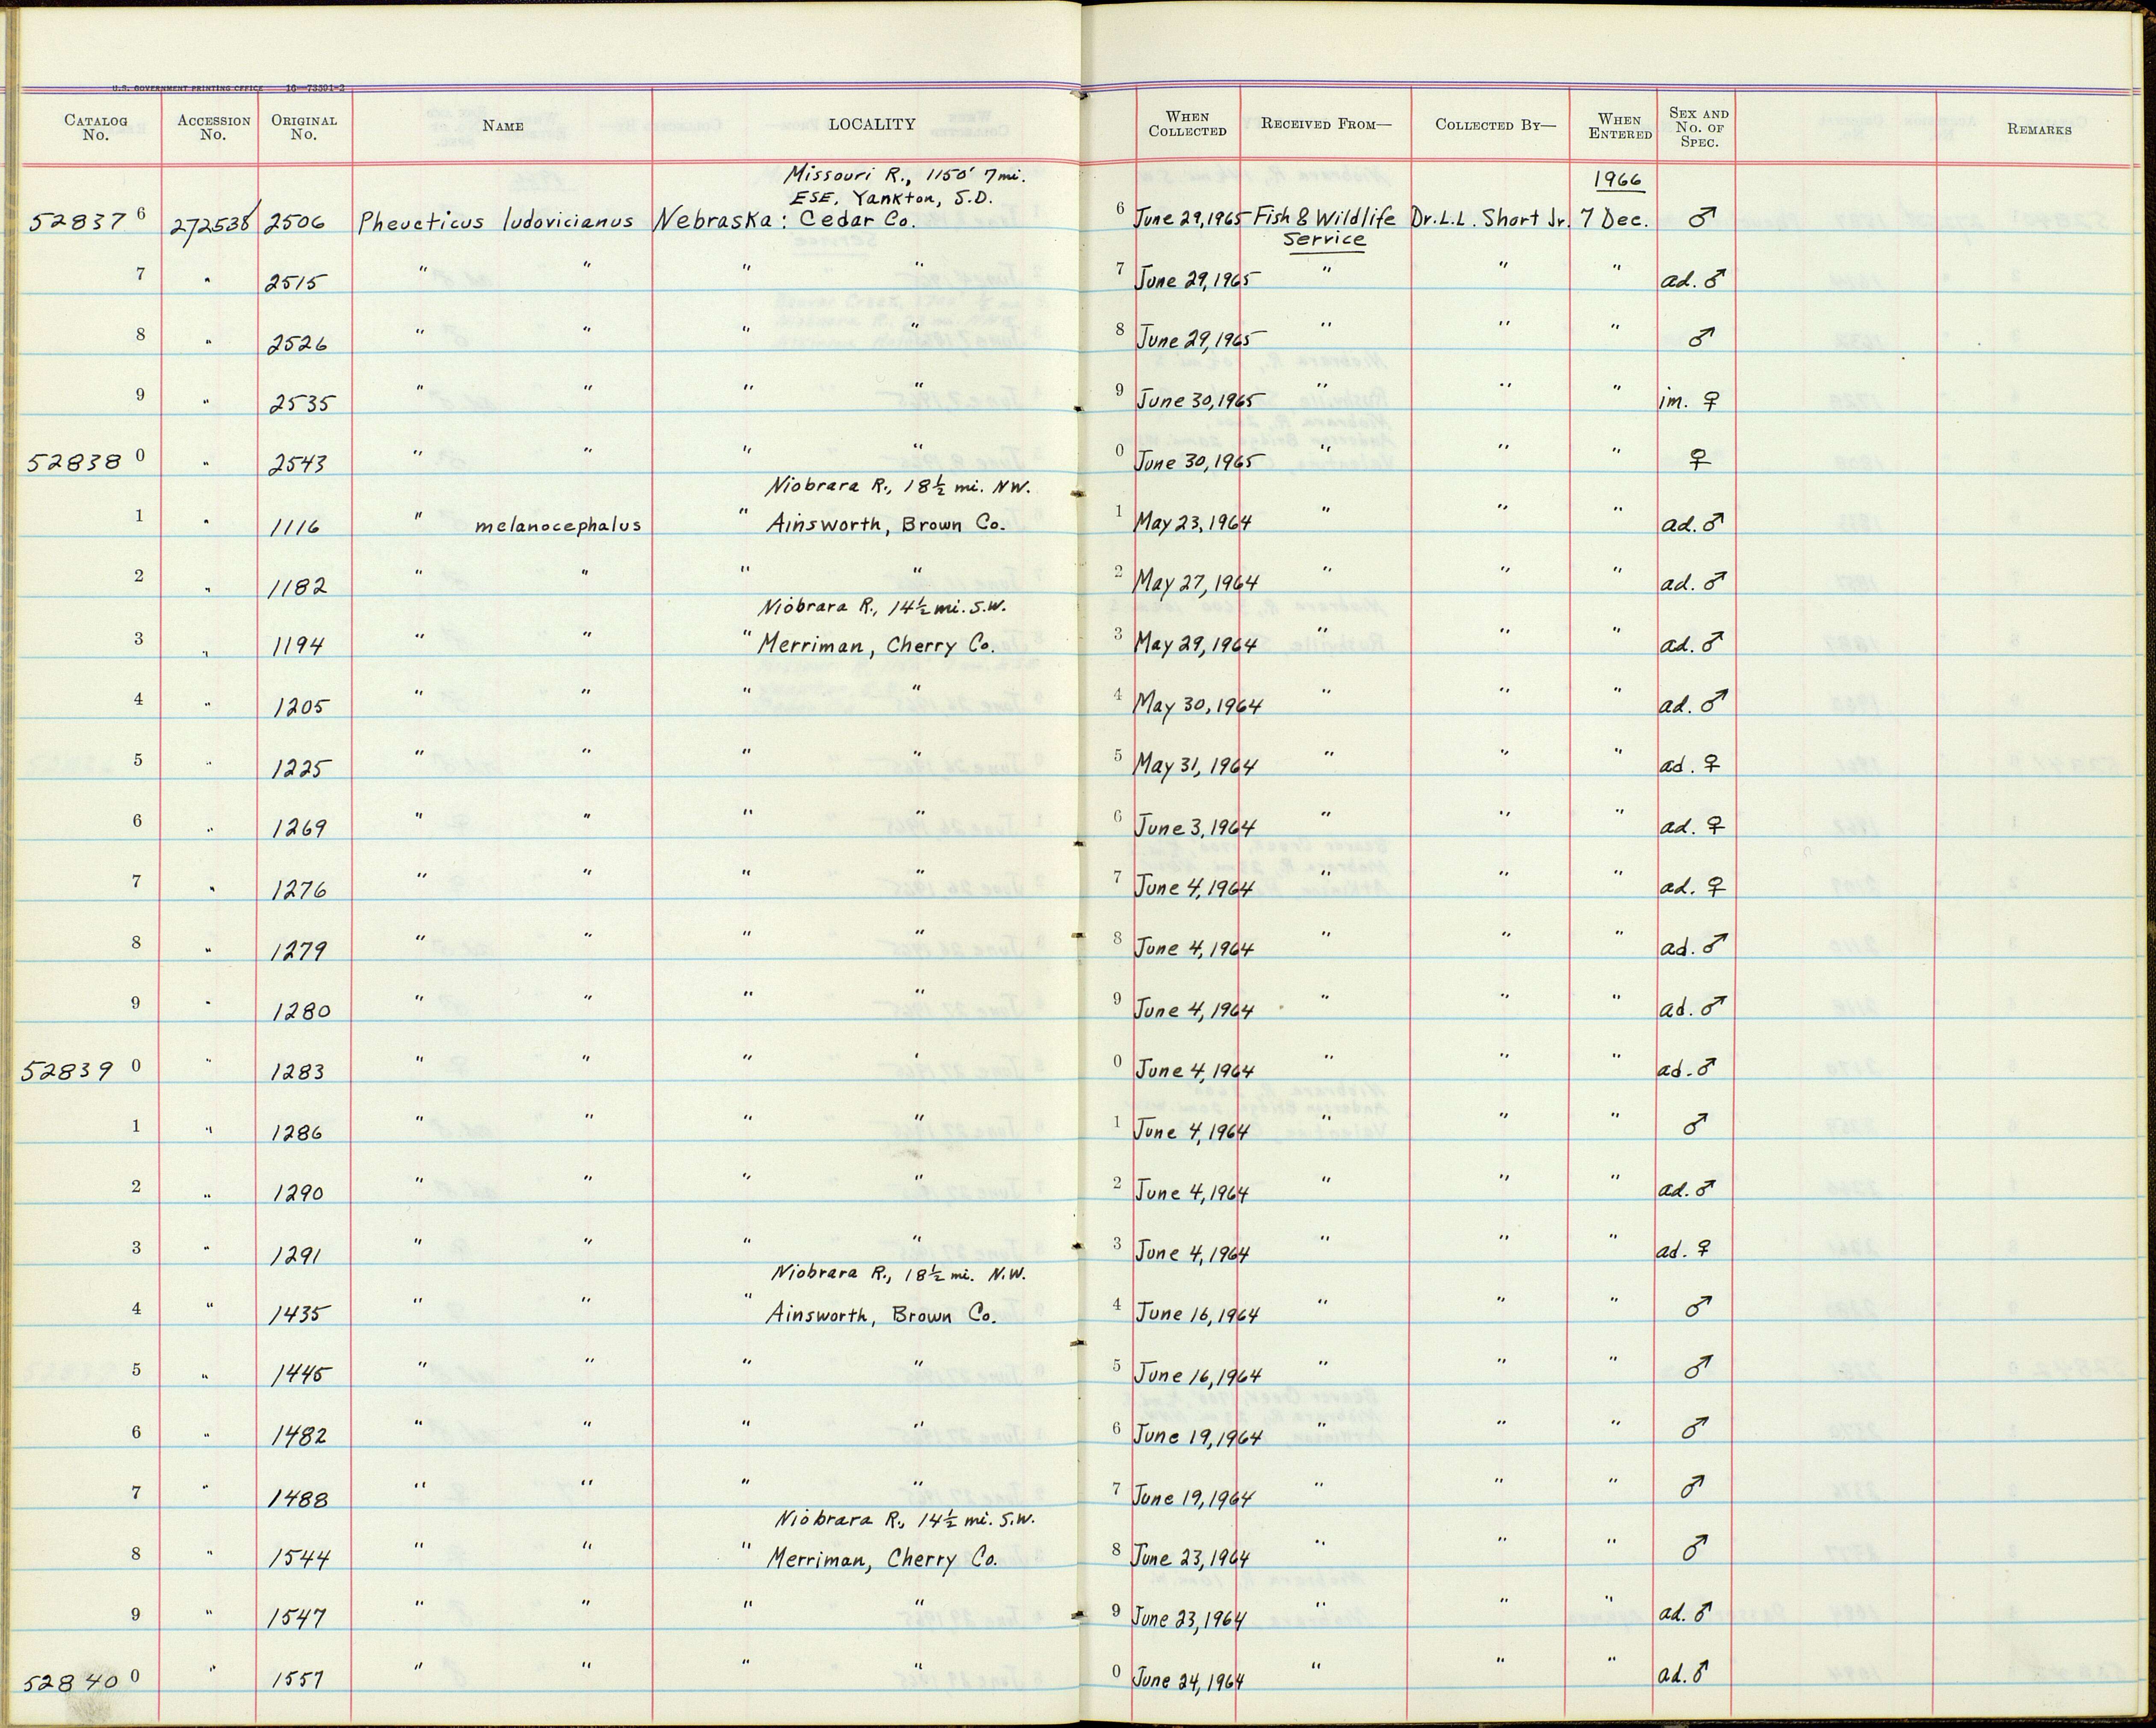 U.S. GOVERNMENT PRINTING OFFICE 16—73301-2
CATALOG No. ACCESSION No. ORIGINAL No. NAME LOCALITY WHEN COLLECTED RECEIVED FROM— COLLECTED BY— WHEN ENTERED SEX AND No. OF SPEC. REMARKS
Missouri R., 1150' 7mi.
ESE, Yankton, S.D. 1966
52837 6 272538 2506 Pheucticus ludovicianus Nebraska: Cedar Co. 6 June 29, 1965 Fish & Wildlife Dr. L.L. Short Jr. 7 Dec. ♂
Service
7 " 2515 " " " " 7 June 29, 1965 " " " ad. ♂
8 " 2526 " " " " 8 June 29, 1965 " " " ♂
9 " 2535 " " " " 9 June 30, 1965 " " " im. ♀
52838 0 " 2543 " " " " 0 June 30, 1965 " " " ♀
Niobrara R., 18½ mi. NW.
1 " 1116 " melanocephalus " Ainsworth, Brown Co. 1 May 23, 1964 " " " ad. ♂
2 " 1182 " " " " 2 May 27, 1964 " " " ad. ♂
Niobrara R., 14½ mi. S.W.
3 " 1194 " " " Merriman, Cherry Co. 3 May 29, 1964 " " " ad. ♂
4 " 1205 " " " " 4 May 30, 1964 " " " ad. ♂
5 " 1225 " " " " 5 May 31, 1964 " " " ad. ♀
6 " 1269 " " " " 6 June 3, 1964 " " " ad. ♀
7 " 1276 " " " " 7 June 4, 1964 " " " ad. ♀
8 " 1279 " " " " 8 June 4, 1964 " " " ad. ♂
9 " 1280 " " " " 9 June 4, 1964 " " " ad. ♂
52839 0 " 1283 " " " " 0 June 4, 1964 " " " ad. ♂
1 " 1286 " " " " 1 June 4, 1964 " " " ♂
2 " 1290 " " " " 2 June 4, 1964 " " " ad. ♂
3 " 1291 " " " " 3 June 4, 1964 " " " ad. ♀
Niobrara R., 18½ mi. N.W.
4 " 1435 " " " Ainsworth, Brown Co. 4 June 16, 1964 " " " ♂
5 " 1445 " " " " 5 June 16, 1964 " " " ♂
6 " 1482 " " " " 6 June 19, 1964 " " " ♂
7 " 1488 " " " " 7 June 19, 1964 " " " ♂
Niobrara R., 14½ mi. S.W.
8 " 1544 " " " Merriman, Cherry Co. 8 June 23, 1964 " " " ♂
9 " 1547 " " " " 9 June 23, 1964 " " " ad. ♂
52840 0 " 1557 " " " " 0 June 24, 1964 " " " ad. ♂